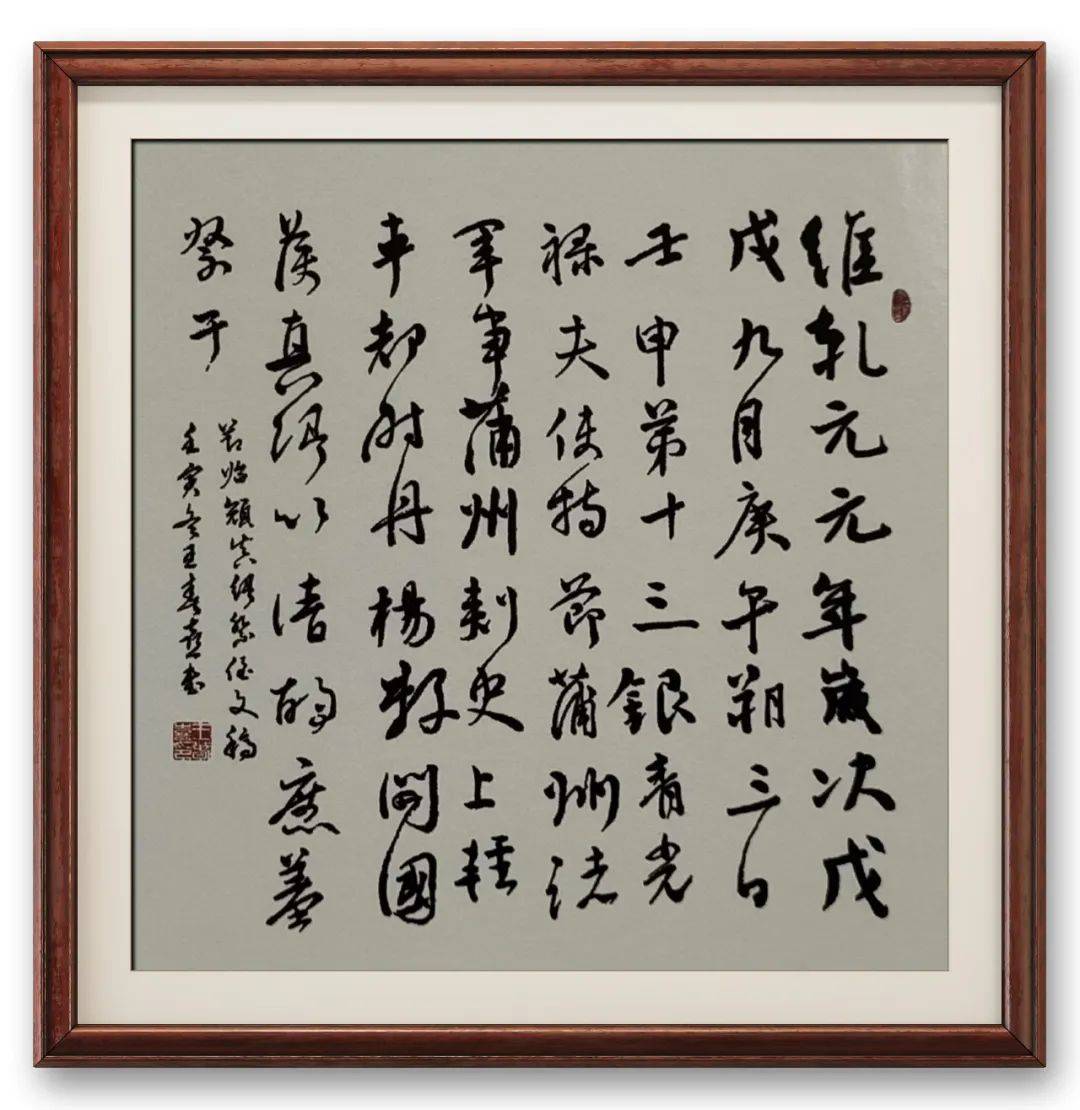 維乾元元年歲次戊
戌九月庚午朔三日
壬申第十三銀青光
禄夫使持節蒲州諸
軍事蒲州刺史上輕
車都尉丹楊縣開國
侯真卿以清酌庶羞
祭于
節臨顏真卿祭侄文稿
壬寅冬王春書